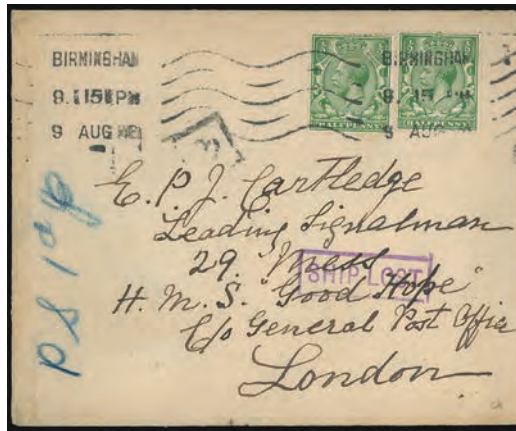 BIRMINGHAM BIRMINGHAM
9. 15 PM 9. 15 PM
9 AUG 9 AUG
HALFPENNY HALFPENNY
E. P. J. Cartledge
Leading Signalman
29. Mess
SHIP LOST
H. M. S. "Good Hope"
C/o General Post Office
London